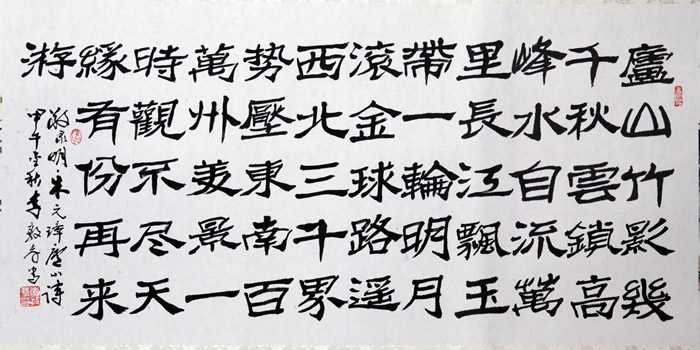 廬山竹影幾
千秋雲鎖高
峰水自流萬
里長江飄玉
帶一輪明月
滾金球路遥
西北三千界
势壓東南百
萬州美景一
時觀不尽天
緣有份再来
游
敬录明·朱元璋廬山詩
甲午金秋李